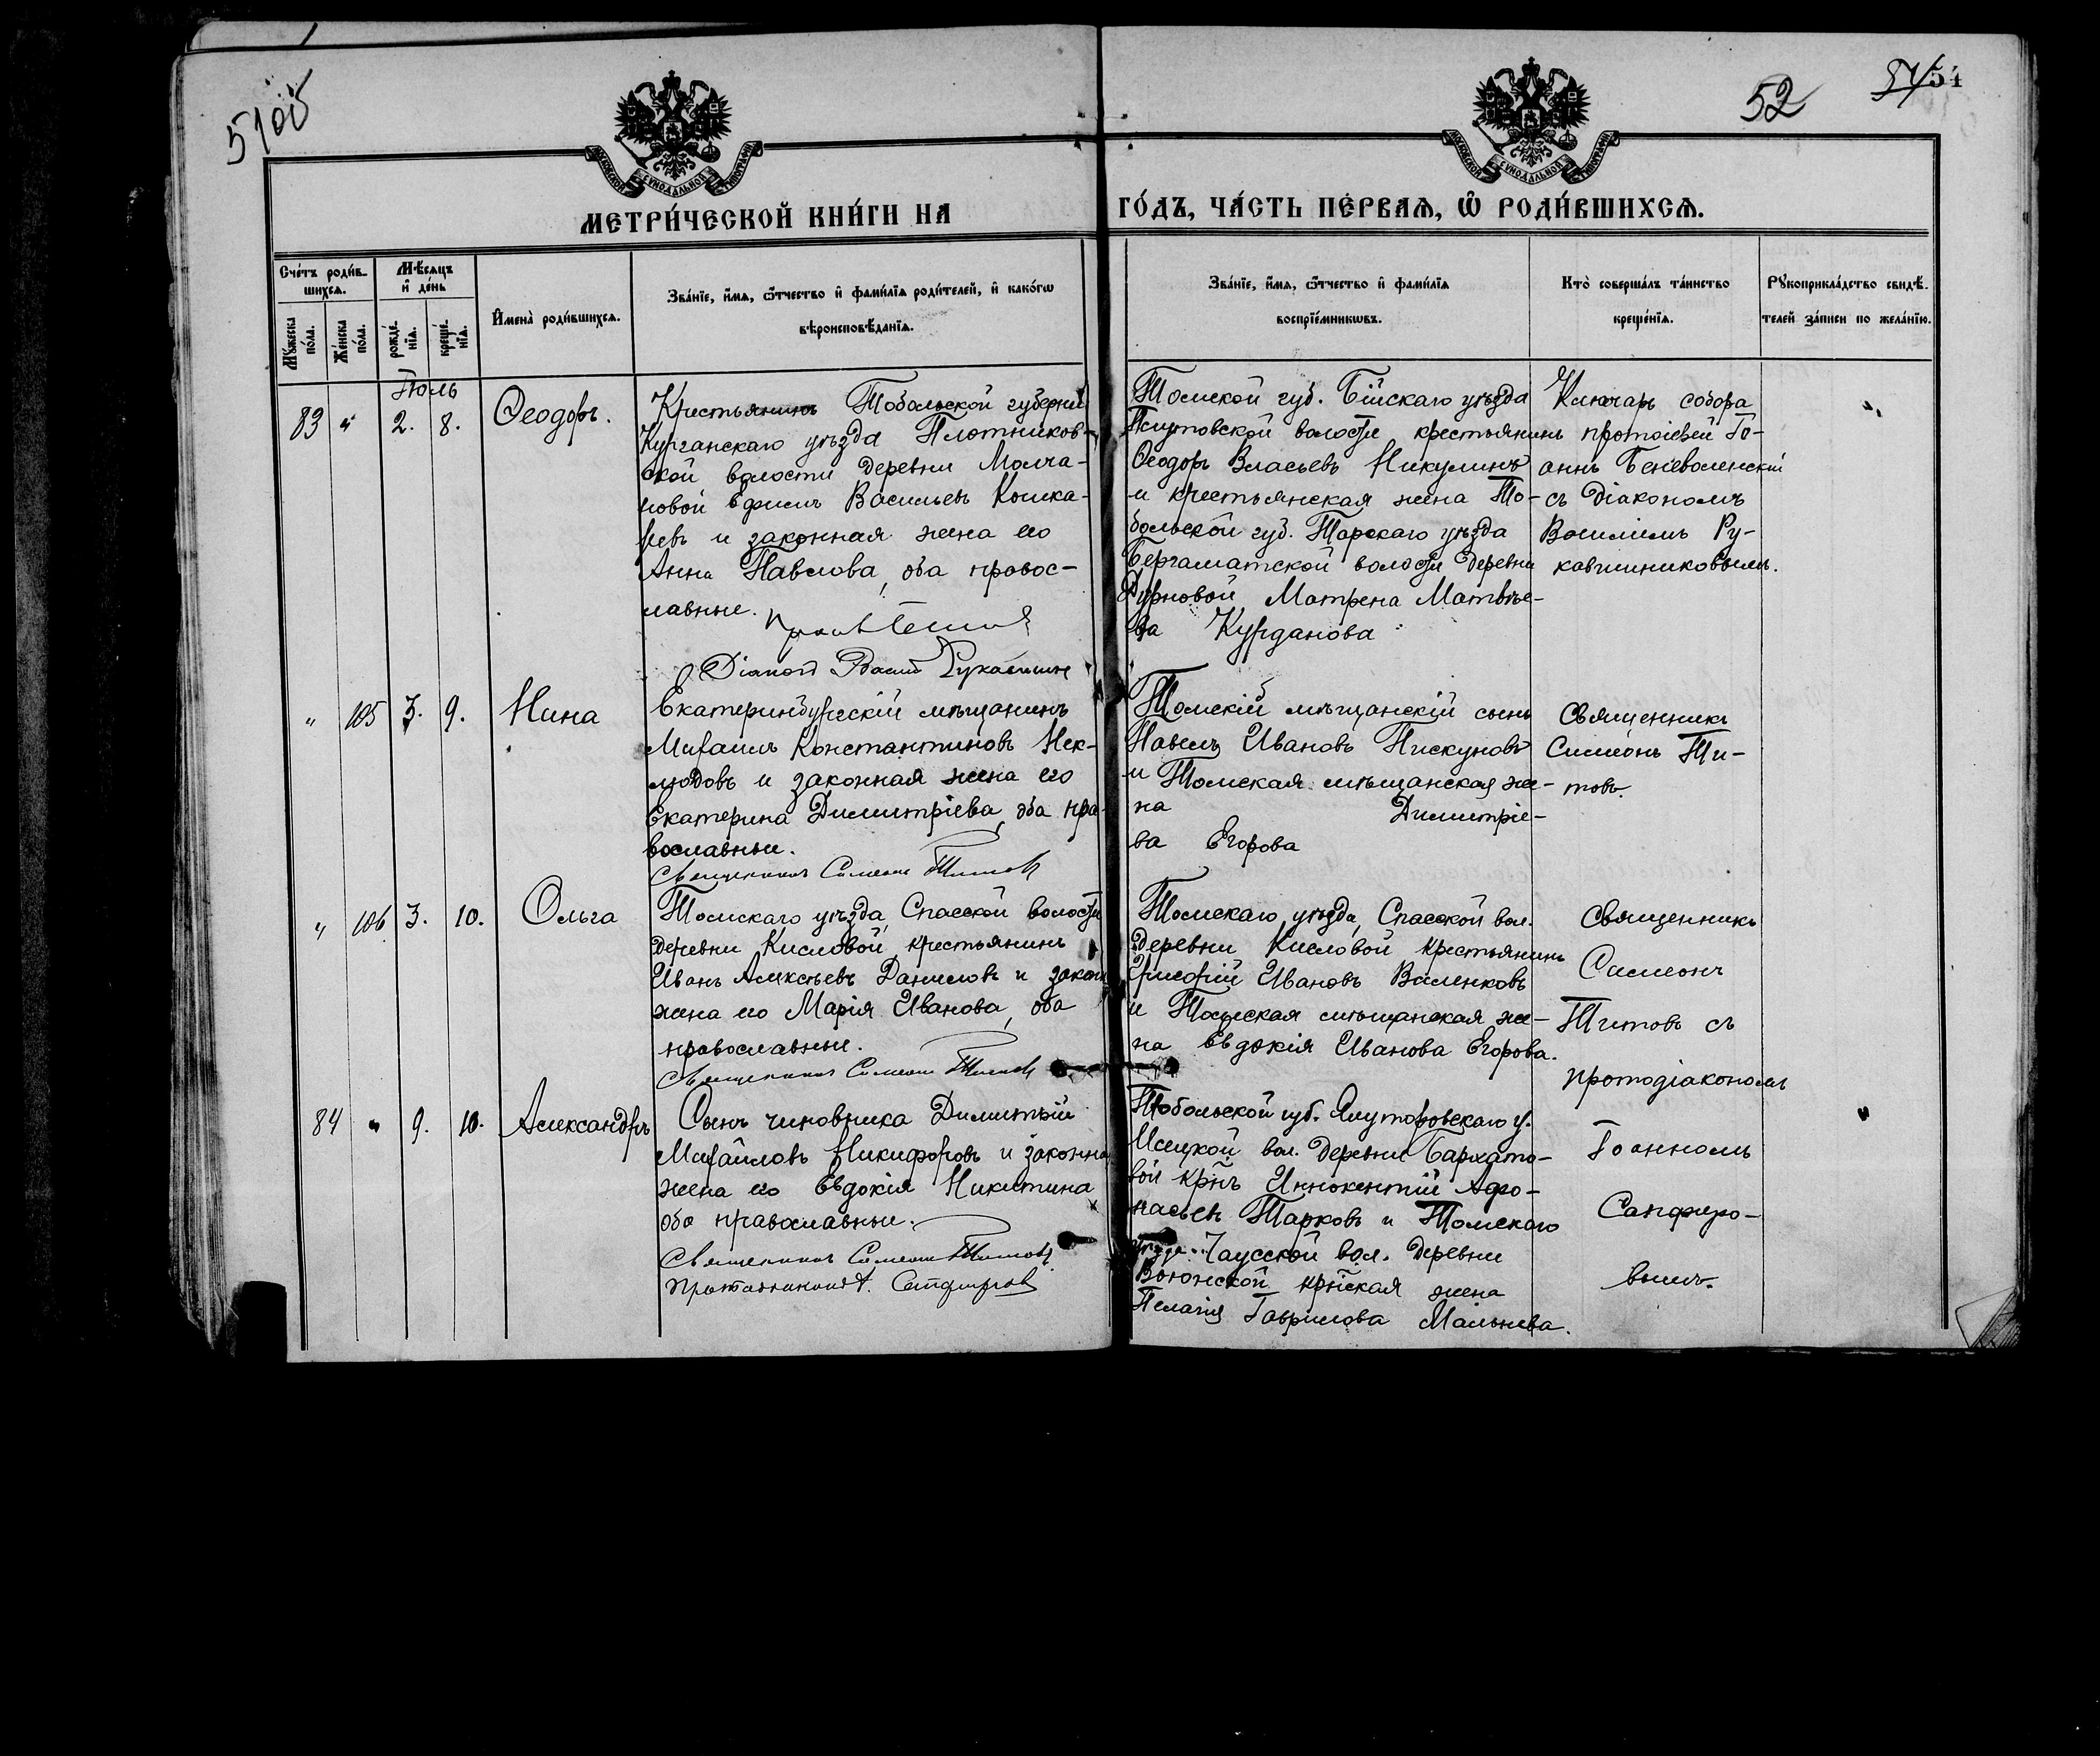 5105
52
51/54
МЕТРИ́ЧЕСКОЙ КНИ́ГИ НА
ГО́ДЪ, ЧА́СТЬ ПЕ́РВАѦ, Ѽ РОДИ́ВШИХСѦ.
Сче́тъ роди́в-
шихсѧ.
Мꙋ́жеска по́ла.
Же́нска по́ла.
Мѣ́сѧцъ
и҆ де́нь
рожде́-
нїѧ.
креще́-
нїѧ.
И҆мена̀ роди́вшихсѧ.
Зва́нїе, и҆́мѧ, ѻ҆́тчество и҆ фами́лїѧ роди́телей, и҆ како́гѡ
вѣроисповѣ́данїѧ.
Зва́нїе, и҆́мѧ, ѻ҆́тчество и҆ фами́лїѧ
воспрїе́мникѡвъ.
Кто̀ соверша́лъ та́инство
креще́нїѧ.
Рꙋкоприкла́дство свидѣ́-
телей за́писи по жела́нїю.
Іюль
83 " 2. 8.
Ѳеодоръ.
Крестьянинъ Тобольской губерніи
Курганскаго уѣзда Плотников-
ской волости деревни Молча-
новой Ефимъ Васильевъ Кошка-
ревъ и законная жена его
Анна Павлова, оба правос-
лавные.
Діаконъ Васил Рукавишн
Томской губ. Бійскаго уѣзда
волости крестьянинъ
Ѳеодоръ Власьевъ Никулинъ
и крестьянская жена То-
больской губ. Тарскаго уѣзда
Бергаматской волости деревни
Дурновой Матрена Матвѣе-
ва Курданова
Ключарь собора
протоіерей Іо-
аннъ Беневоленскій
съ діакономъ
Василіемъ Ру-
кавишниковымъ.
" 105 3. 9.
Нина
Екатеринбургскій мѣщанинъ
Михаилъ Константиновъ Нек-
людовъ и законная жена его
Екатерина Димитріева, оба пра-
вославные.
Священникъ Симеонъ Титовъ
Томскій мѣщанскій сынъ
Павелъ Ивановъ Пискуновъ
и Томская мѣщанская же-
на Димитріе-
ва Егорова
Священникъ
Симеонъ Ти-
товъ.
" 106 3. 10.
Ольга
Томскаго уѣзда, Спасской волости
деревни Кисловой, крестьянинъ
Иванъ Алексѣевъ Даниловъ и закон
жена его Марія Иванова, оба
православные.
Священникъ Симеонъ Титовъ
Томскаго уѣзда, Спасской вол.
деревни Кисловой крестьянинъ
Григорій Ивановъ Валенковъ
и Томская мѣщанская же-
на Евдокія Иванова Егорова.
Священникъ
Симеонъ
Титовъ съ
протодіакономъ
Іоанномъ
Сапфиро-
вымъ.
84 " 9. 10.
Александръ
Сынъ чиновника Димитрій
Михайловъ Никифоровъ и законна
жена его Евдокія Никитина
оба православные.
Священникъ Симеонъ Титовъ.
Протодіаконъ І. Сапфировъ
Тобольской губ. Ялуторовскаго у.
Исецкой вол. деревни Бархато-
вой крнъ Иннокентій Афо-
насьевъ Тарковъ и Томскаго
уѣзда Чаусской вол. деревни
крнская жена
Пелагія Гаврилова Мальнева.